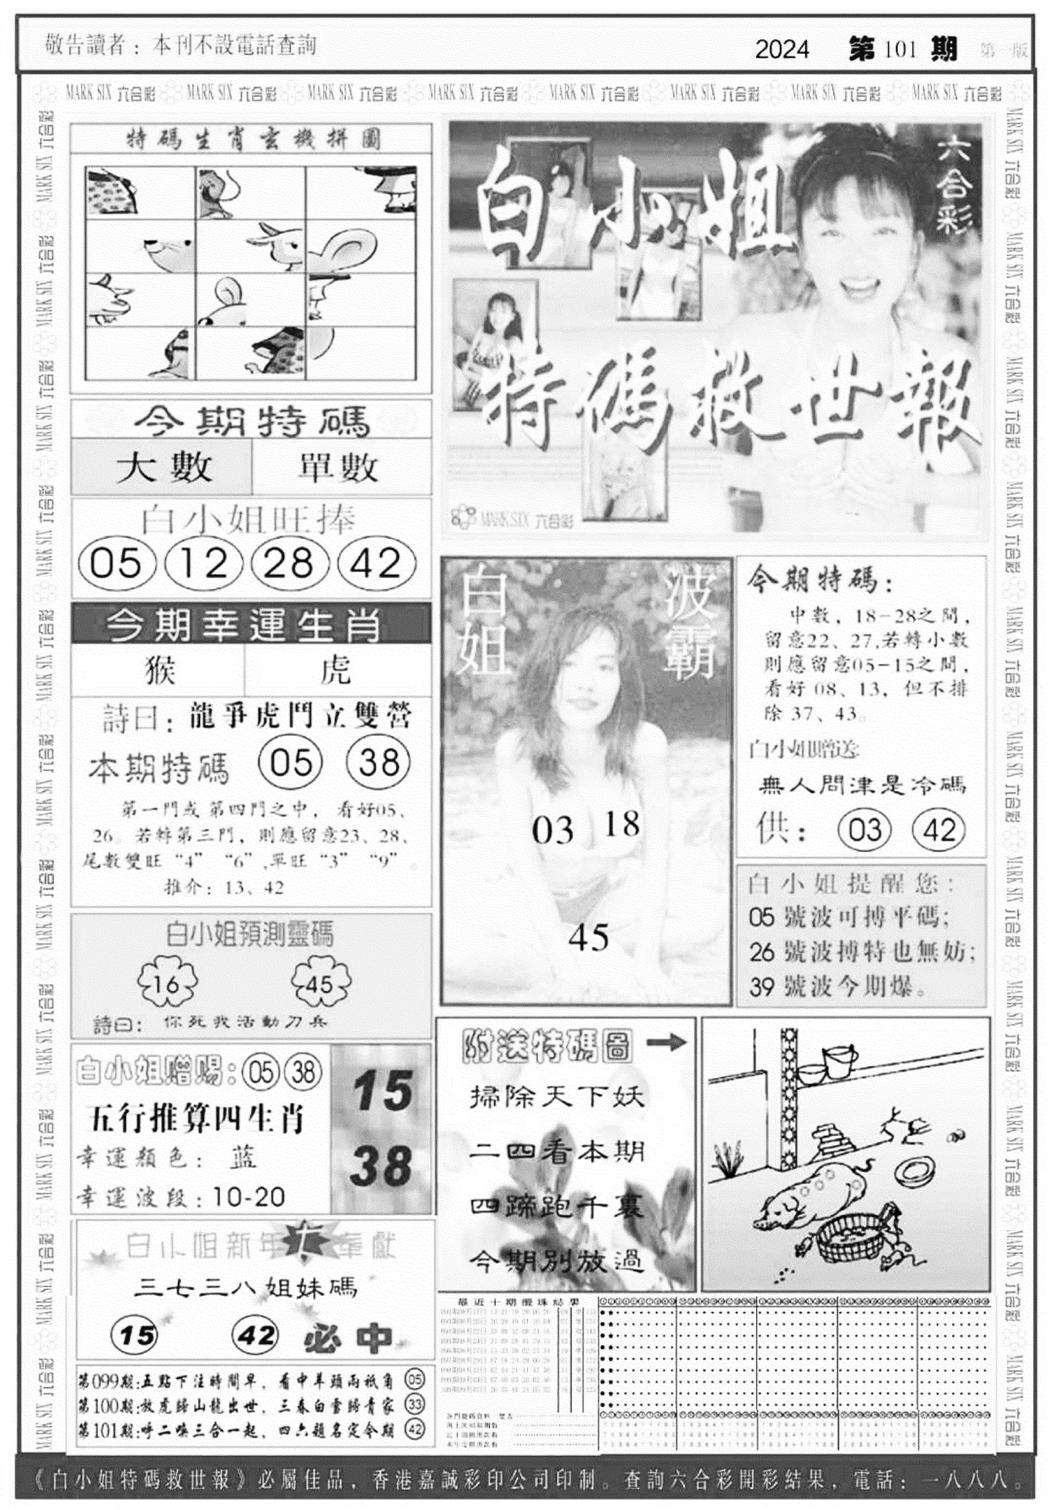 敬告讀者：本刊不設電話查詢
2024 第101期 第一版
MARK SIX 六合彩 MARK SIX 六合彩 MARK SIX 六合彩 MARK SIX 六合彩 MARK SIX 六合彩 MARK SIX 六合彩 MARK SIX 六合彩 MARK SIX 六合彩
特碼生肖玄機拼圖
今期特碼
大數 單數
白小姐旺捧
05 12 28 42
今期幸運生肖
猴 虎
詩曰：龍爭虎鬥立雙營
本期特碼 05 38
第一門或第四門之中，看好05、
26。若轉第三門，則應留意23、28、
尾數雙旺“4”“6”,單旺“3”“9”。
推介：13、42
白小姐預測靈碼
16 45
詩曰：你死我活動刀兵
白小姐赠赐：05 38
五行推算四生肖
幸運顏色：蓝
幸運波段：10-20
15
38
白小姐新年大奉獻
三七三八姐妹碼
15 42 必中
第099期:五點下注時間早，看中羊頭兩祗角 05
第100期:放虎歸山龍出世，三春白雪歸青家 33
第101期:呼二喚三合一起，四六題名定今期 42
六合彩
白小姐
特碼救世報
MARK SIX 六合彩
白姐
波霸
03 18
45
今期特碼：
中數，18-28之間，
留意22、27,若轉小數
則應留意05-15之間，
看好08、13，但不排
除37、43。
白小姐贈送:
無人問津是冷碼
供：03 42
白小姐提醒您：
05 號波可搏平碼；
26 號波搏特也無妨；
39 號波今期爆。
附送特碼圖
掃除天下妖
二四看本期
四蹄跑千裏
今期別放過
最近十期攪珠結果
《白小姐特碼救世報》必屬佳品，香港嘉誠彩印公司印制。查詢六合彩開彩結果，電話：一八八八。